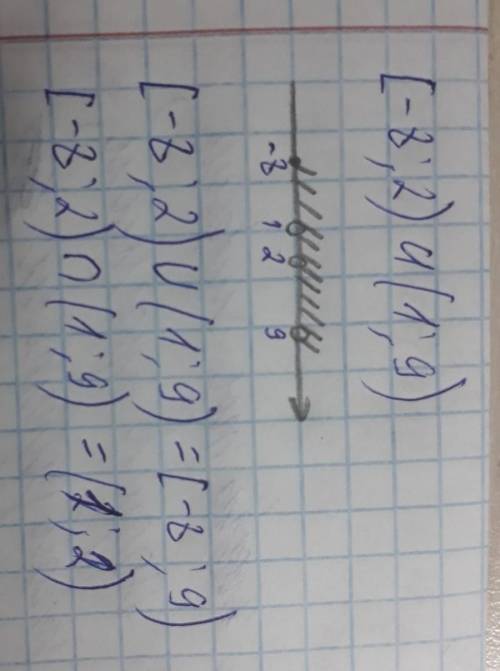 [-8; 2) и (1; 9)
-8 1 2 9
[-8; 2) ∪ (1; 9) = [-8; 9)
[-8; 2) ∩ (1; 9) = (1; 2)